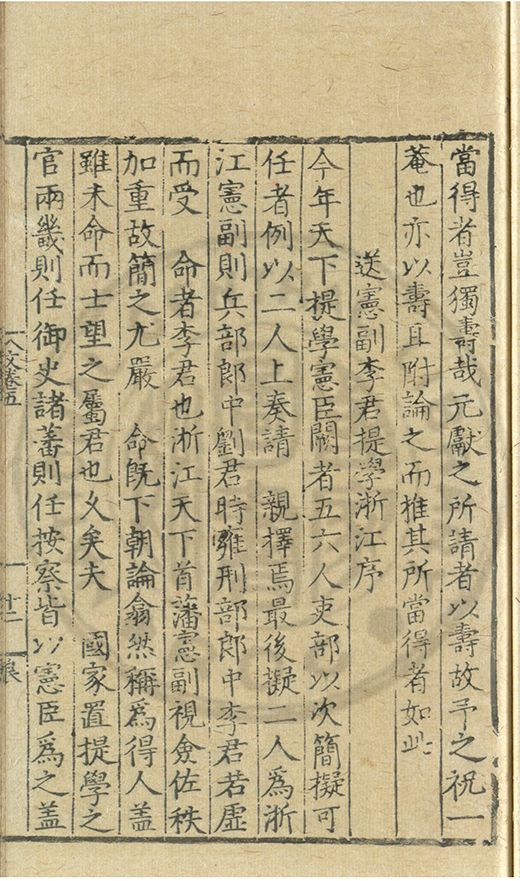 當得者豈獨壽哉元獻之所請者以壽故予之祝一
菴也亦以壽且附論之而推其所當得者如此
送憲副李君提學浙江序
今年天下提學憲臣闕者五六人吏部以次簡擬可
任者例以二人上奏請　親擇焉最後擬二人爲浙
江憲副則兵部郎中劉君時雍刑部郎中李君若虛
而受　命者李君也浙江天下首藩憲副視僉佐秩
加重故簡之尤嚴　命旣下朝論翕然稱爲得人盖
雖未命而士望之屬君也乆矣夫　國家置提學之
官兩畿則任御史諸藩則任按察皆以憲臣爲之盖
文卷五
十二